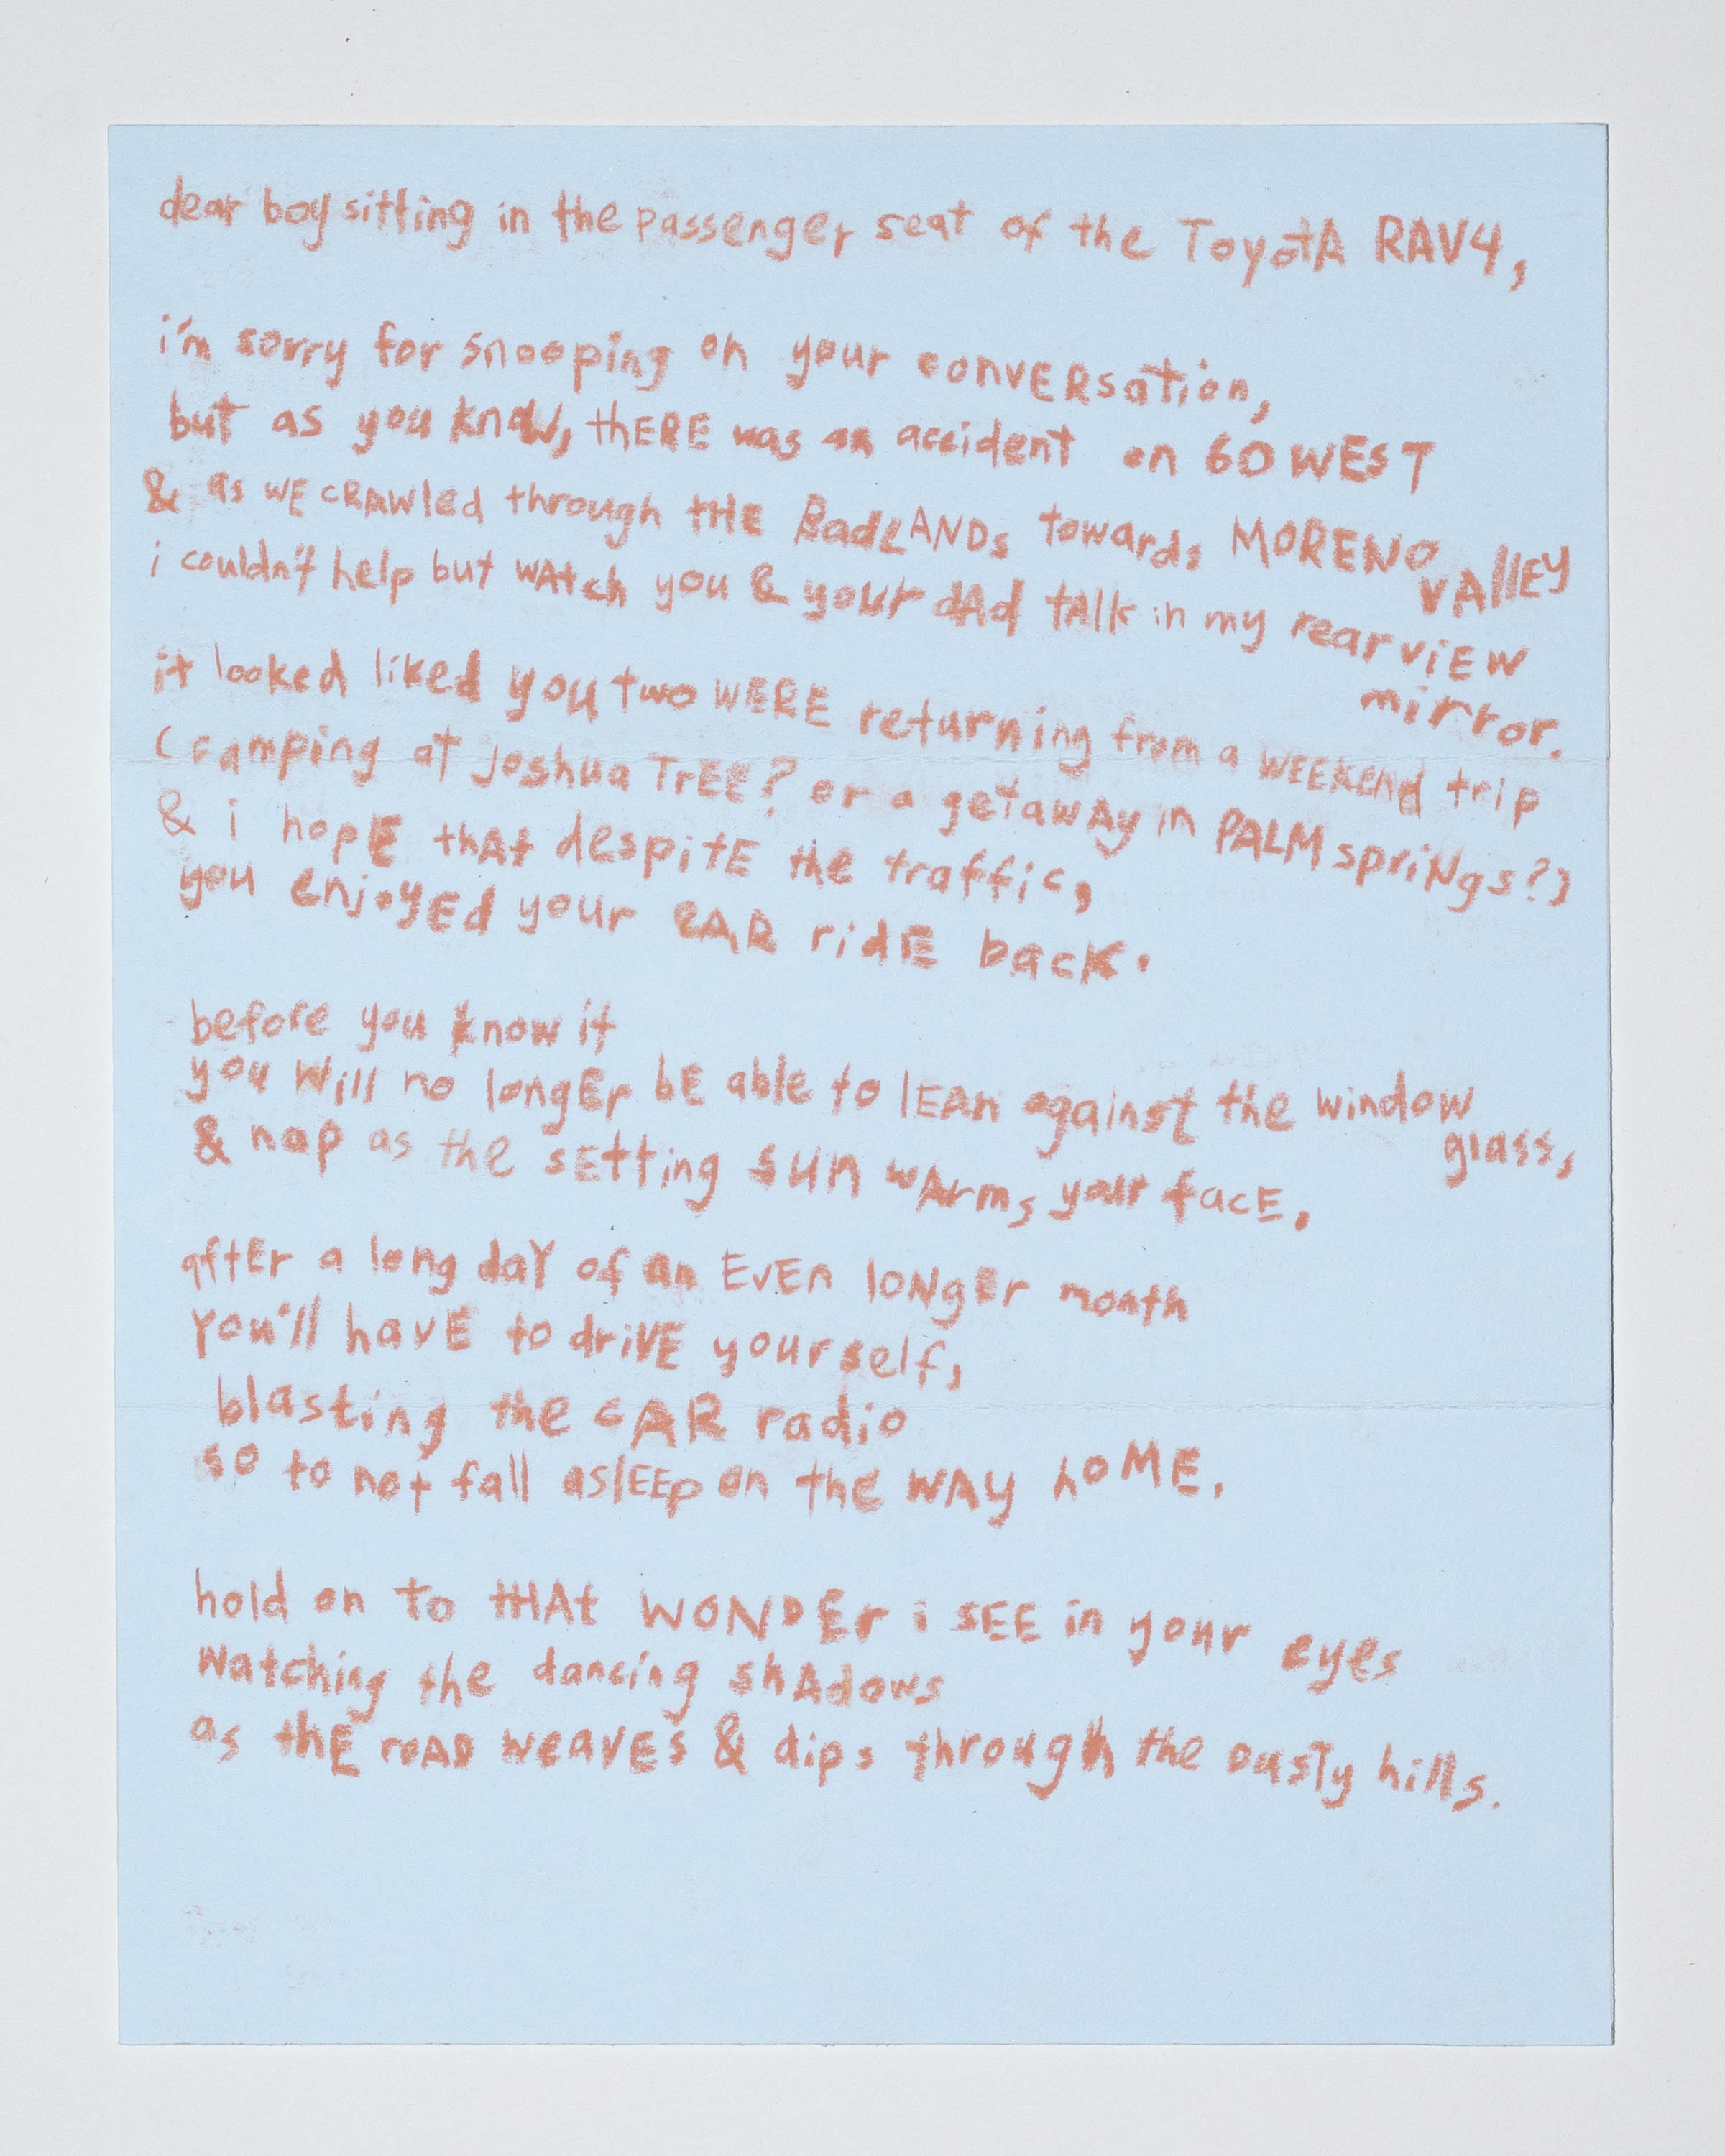 dear boy sitting in the passenger seat of the ToyotA RAV4,
i'm sorry for snooping on your convERsation,
but as you know, thERE was an accident on 60 WEST
& as WE cRAwled through tHE BadLANDs towards MORENO
vAllEy
i couldn't help but wAtch you & your dAd tAlk in my rear viEw
mirror.
it looked liked you two WERE returning from a WEEKEnd trip
(camping at Joshua TrEE? or a getawAy in PALM spriNgs?)
& i hopE thAt despitE the traffic,
you enjoyEd your cAR ridE back.
before you know it
you will no longEr bE able to lEAn against the window
glass,
& nap as the sEtting sun wArms your facE.
aftEr a long daY of an EvEn loNgEr month
You'll havE to drivE yourself,
blasting the cAR radio
so to not fall aslEEp on the WAy hoME.
hold on to tHAt WONDEr i SEE in your eyes
watching the dancing shAdows
as thE roAD weavEs & dips through the Dusty hills.